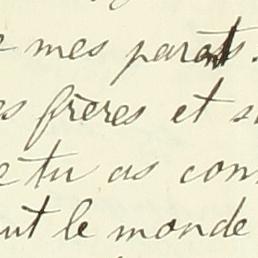 e mes parents.
es frères et s
e tu as con
out le monde